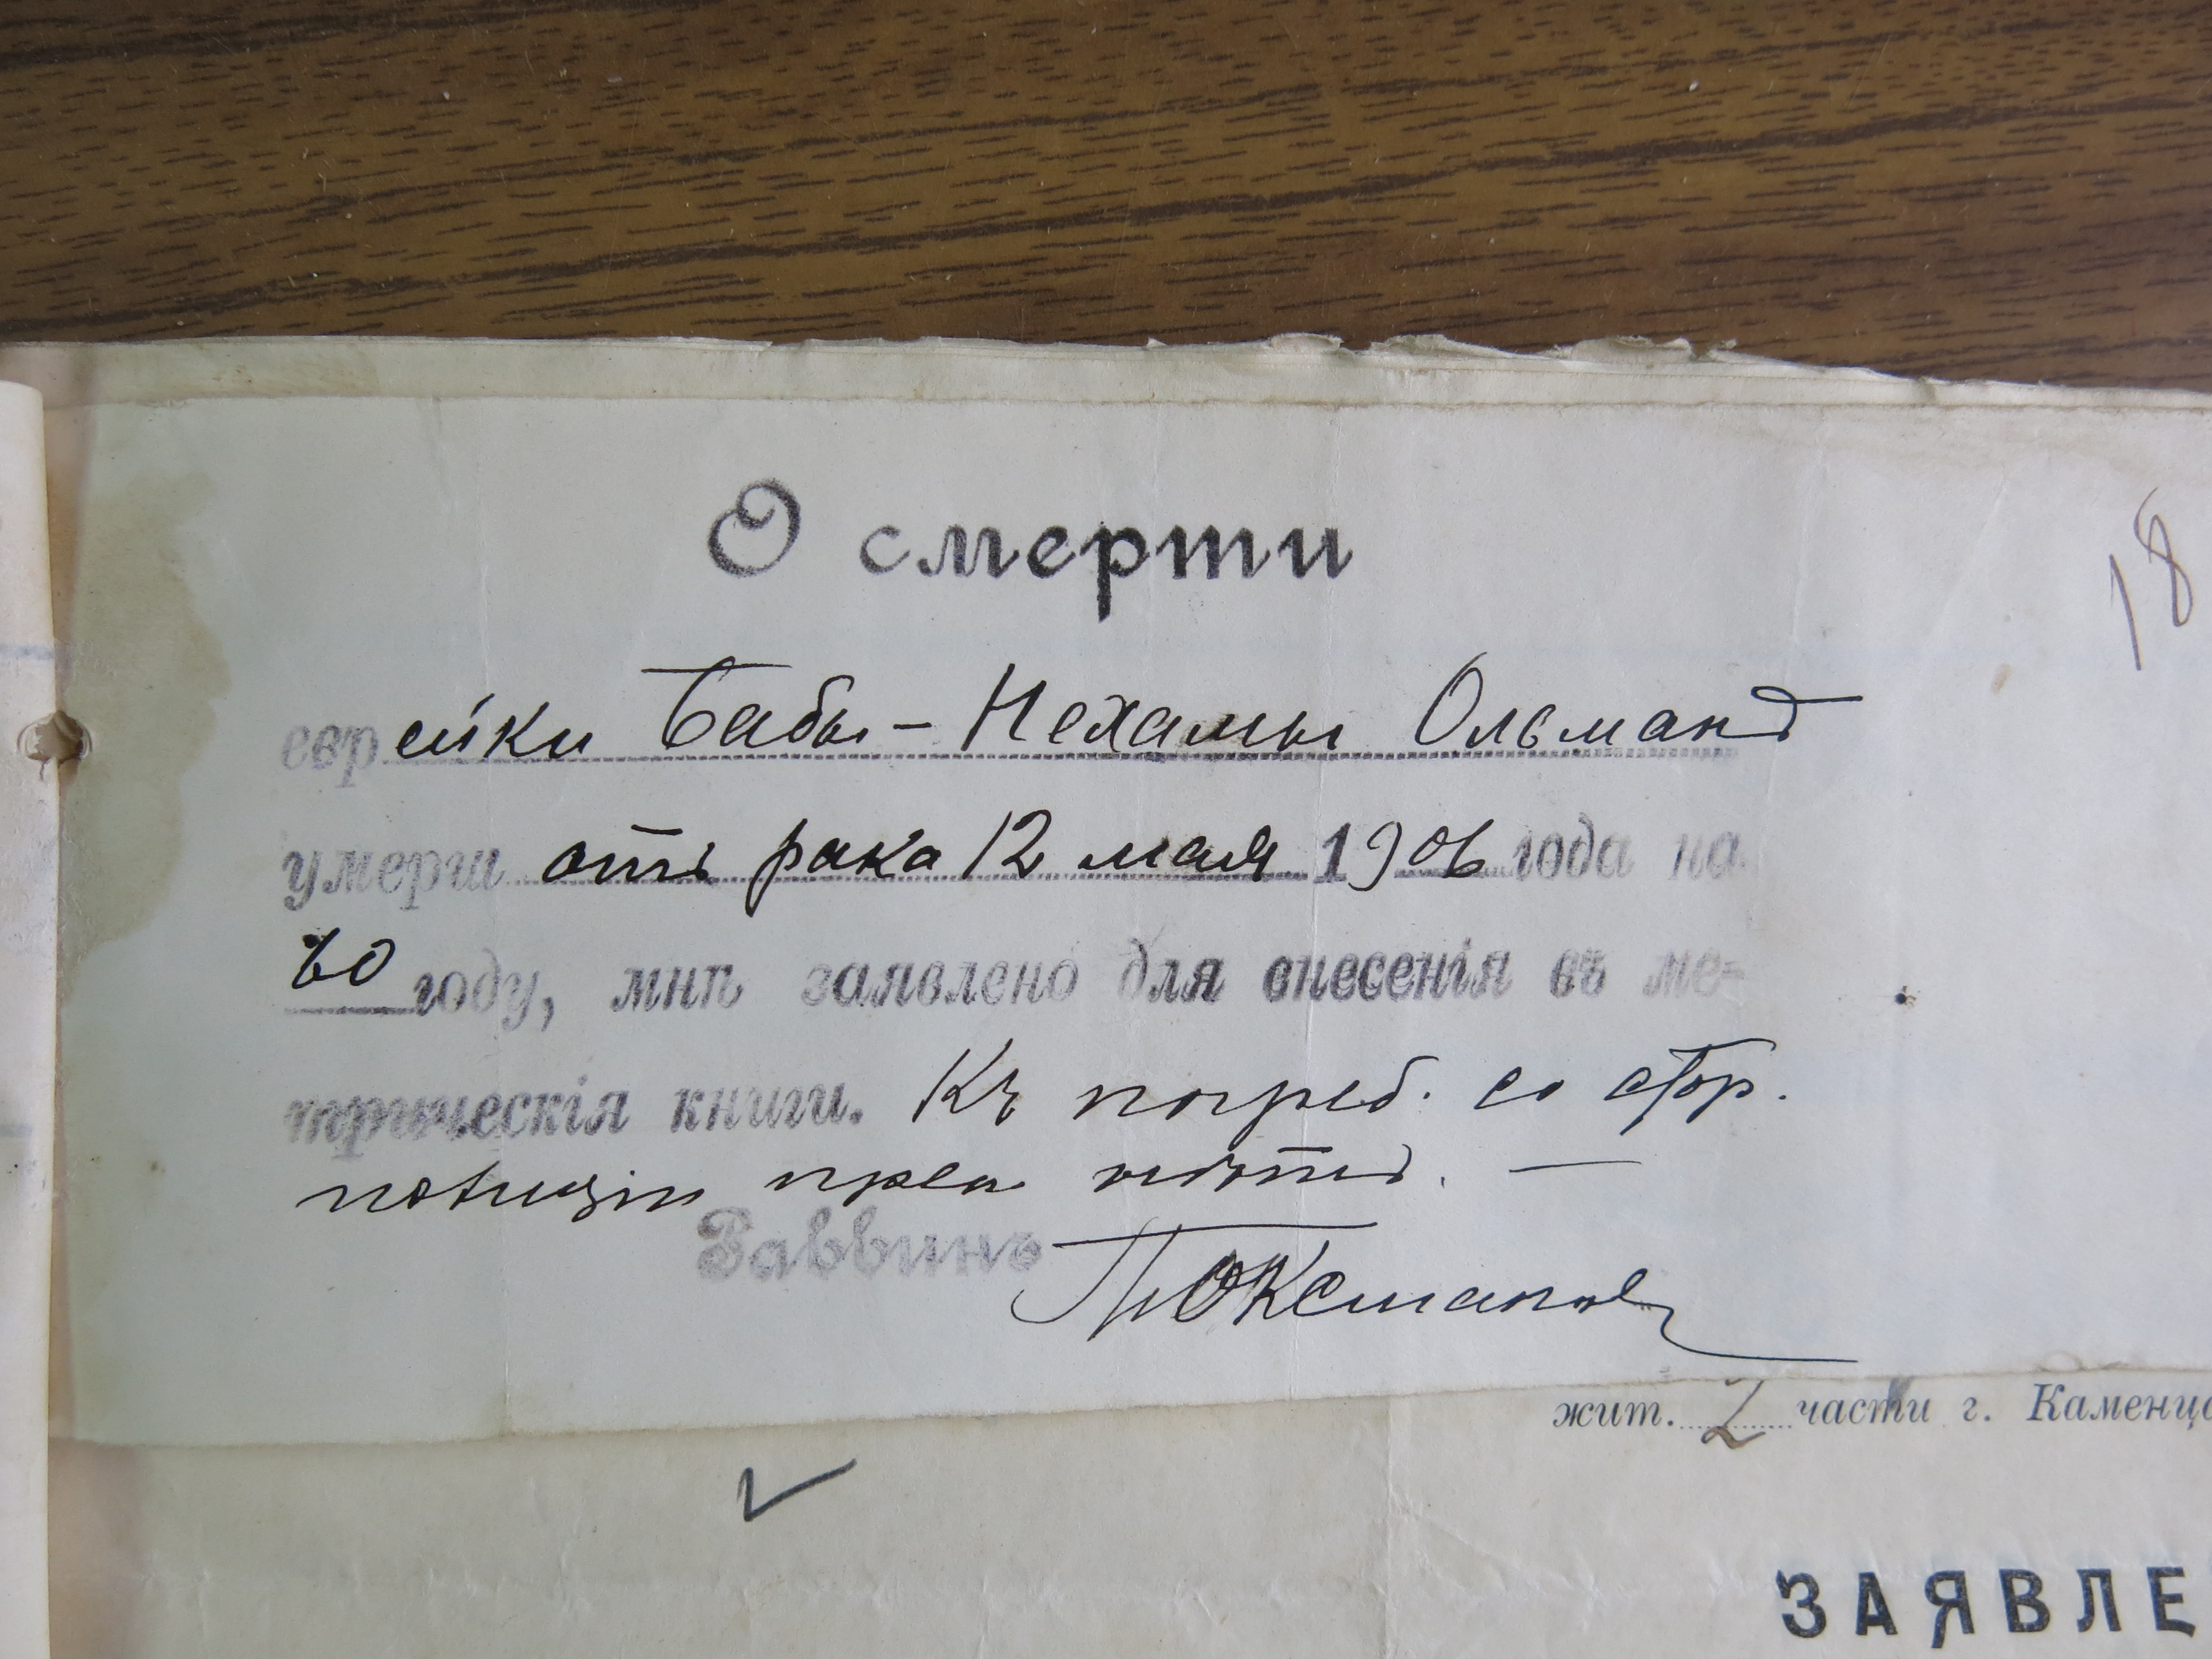 О смерти
18
еврейки Бабы-Нехамы Ольман
умерш отъ рака 12 мая 1906 года на
60 году, мнѣ заявлено для внесенія въ ме-
трическія книги. Къ погреб. со стор.
полиціи преп нѣтъ. —
Раввинъ
жит. 2 части г. Каменца
ЗАЯВЛЕ